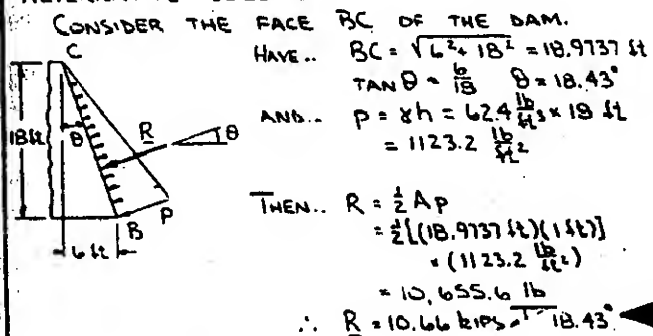 CONSIDER THE FACE BC OF THE DAM.
HAVE.. BC = √6²+ 18² = 18.9737 ft
TAN θ = 6/18 θ = 18.43°
AND... p = γh = 62.4 lb/ft³ × 18 ft
= 1123.2 lb/ft²
C
18 ft
θ
R
θ
B
P
6 ft
THEN.. R = ½ Ap
= ½[(18.9737 ft)(1 ft)]
× (1123.2 lb/ft²)
= 10,655.6 lb
∴ R = 10.66 kips 18.43°